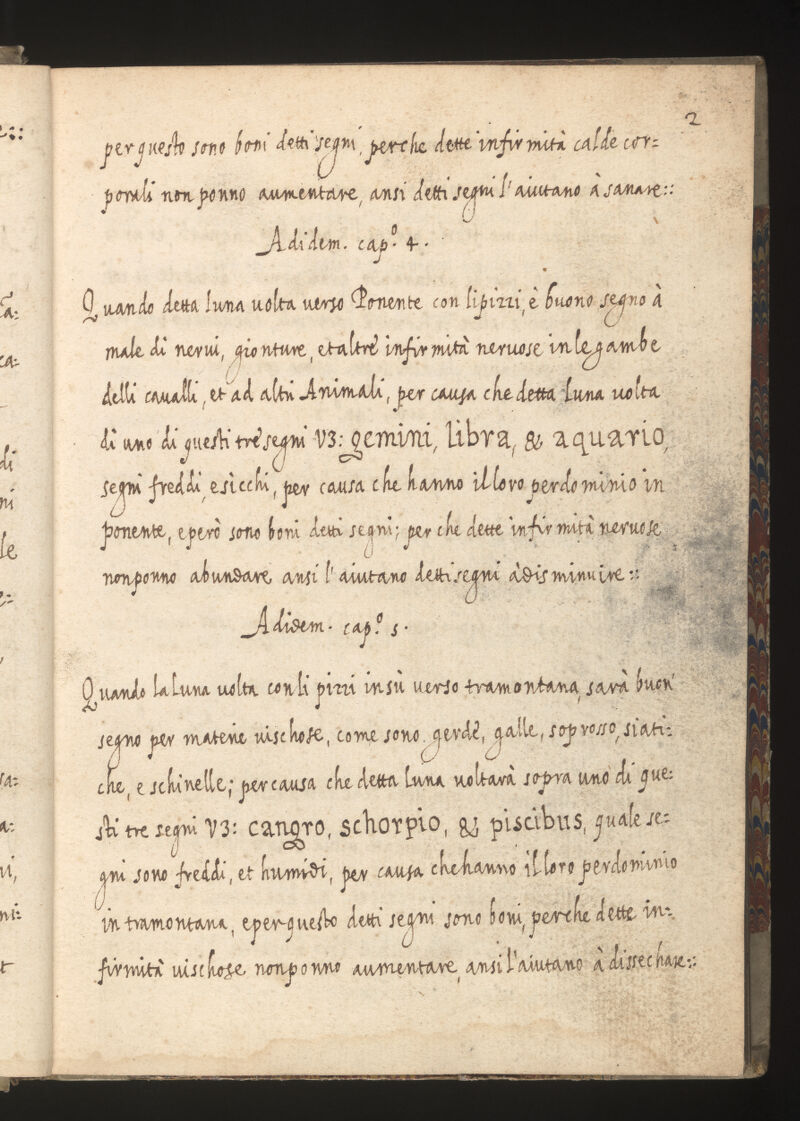 2
per questo sono boni detti segni, perche dette infirmità calde cor=
porali non ponno aumentare, ansi detti segni l'aiutano à sanare::
Adidem. cap.º 4.
Quando detta luna uolta uerso Ponente con li pizzi, è buono segno à
male di nerui, gionture, et altre infirmità neruose in le gambe
delli caualli, et ad altri Animali, per causa che detta luna uolta
di uno di questi tre segni V3: gemini, libra, & aquario,
segni freddi, e sicchi, per causa che hanno il loro perdominio in
ponente, e però sono boni detti segni; per che dette infirmità neruose
non ponno abundare ansi l'aiutano detti segni à disminuire::
Adidem. cap.º 5.
Quando la luna uolta con li pizzi in sù uerso tramontana, sarà buon
segno per materie uischose, come sono gerde, galle, soprosso, siati=
che, e schinelle; per causa che detta luna uoltarà sopra uno di que=
sti tre segni V3: cangro, schorpio, & piscibus, quale se=
gni sono freddi, et humidi, per causa che hanno il loro perdominio
in tramontana, e per questo detti segni sono boni, perche dette in=
firmità uischose non ponno aumentare, ansi l'aiutano à dissechare::